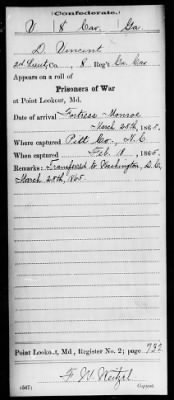 (Confederate.)
V 8 Cav. Ga
D. Vincent
2d Lieut Co. , 8 Reg't Ga. Cav
Appears on a roll of
Prisoners of War
at Point Lookout, Md.
Date of arrival Fortress Monroe
March 28th, 1865.
Where captured Pitt Co., N.C.
When captured Feb. 18, 1865.
Remarks: Transferred to Washington, D.C.
March 28th, 1865.
Point Lookout, Md., Register No. 2; page 722
F. W. Weitzel
(567) Copyist.